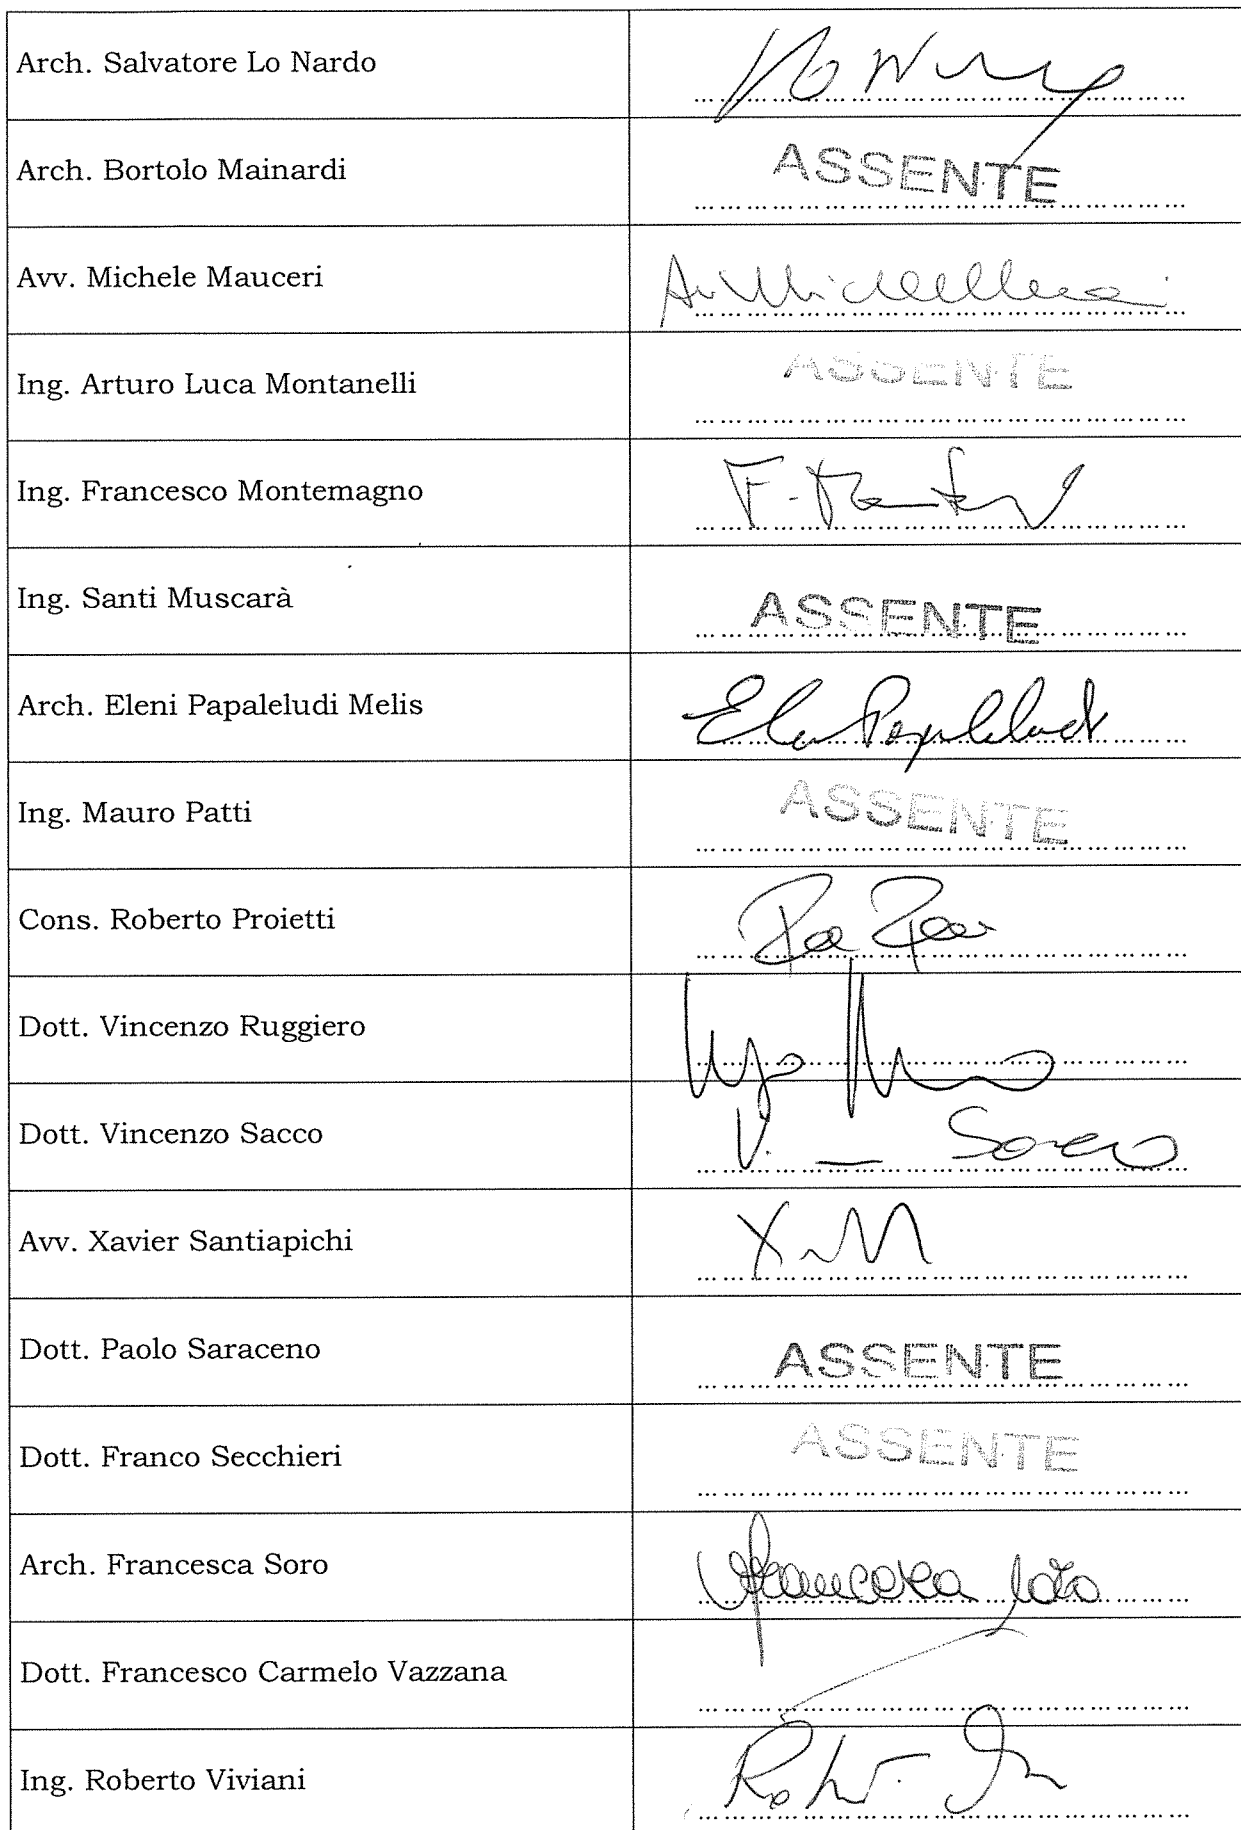 Arch. Salvatore Lo Nardo
Arch. Bortolo Mainardi ASSENTE
Avv. Michele Mauceri
Ing. Arturo Luca Montanelli ASSENTE
Ing. Francesco Montemagno
Ing. Santi Muscarà ASSENTE
Arch. Eleni Papaleludi Melis
Ing. Mauro Patti ASSENTE
Cons. Roberto Proietti
Dott. Vincenzo Ruggiero
Dott. Vincenzo Sacco
Avv. Xavier Santiapichi
Dott. Paolo Saraceno ASSENTE
Dott. Franco Secchieri ASSENTE
Arch. Francesca Soro Francesca Soro
Dott. Francesco Carmelo Vazzana
Ing. Roberto Viviani